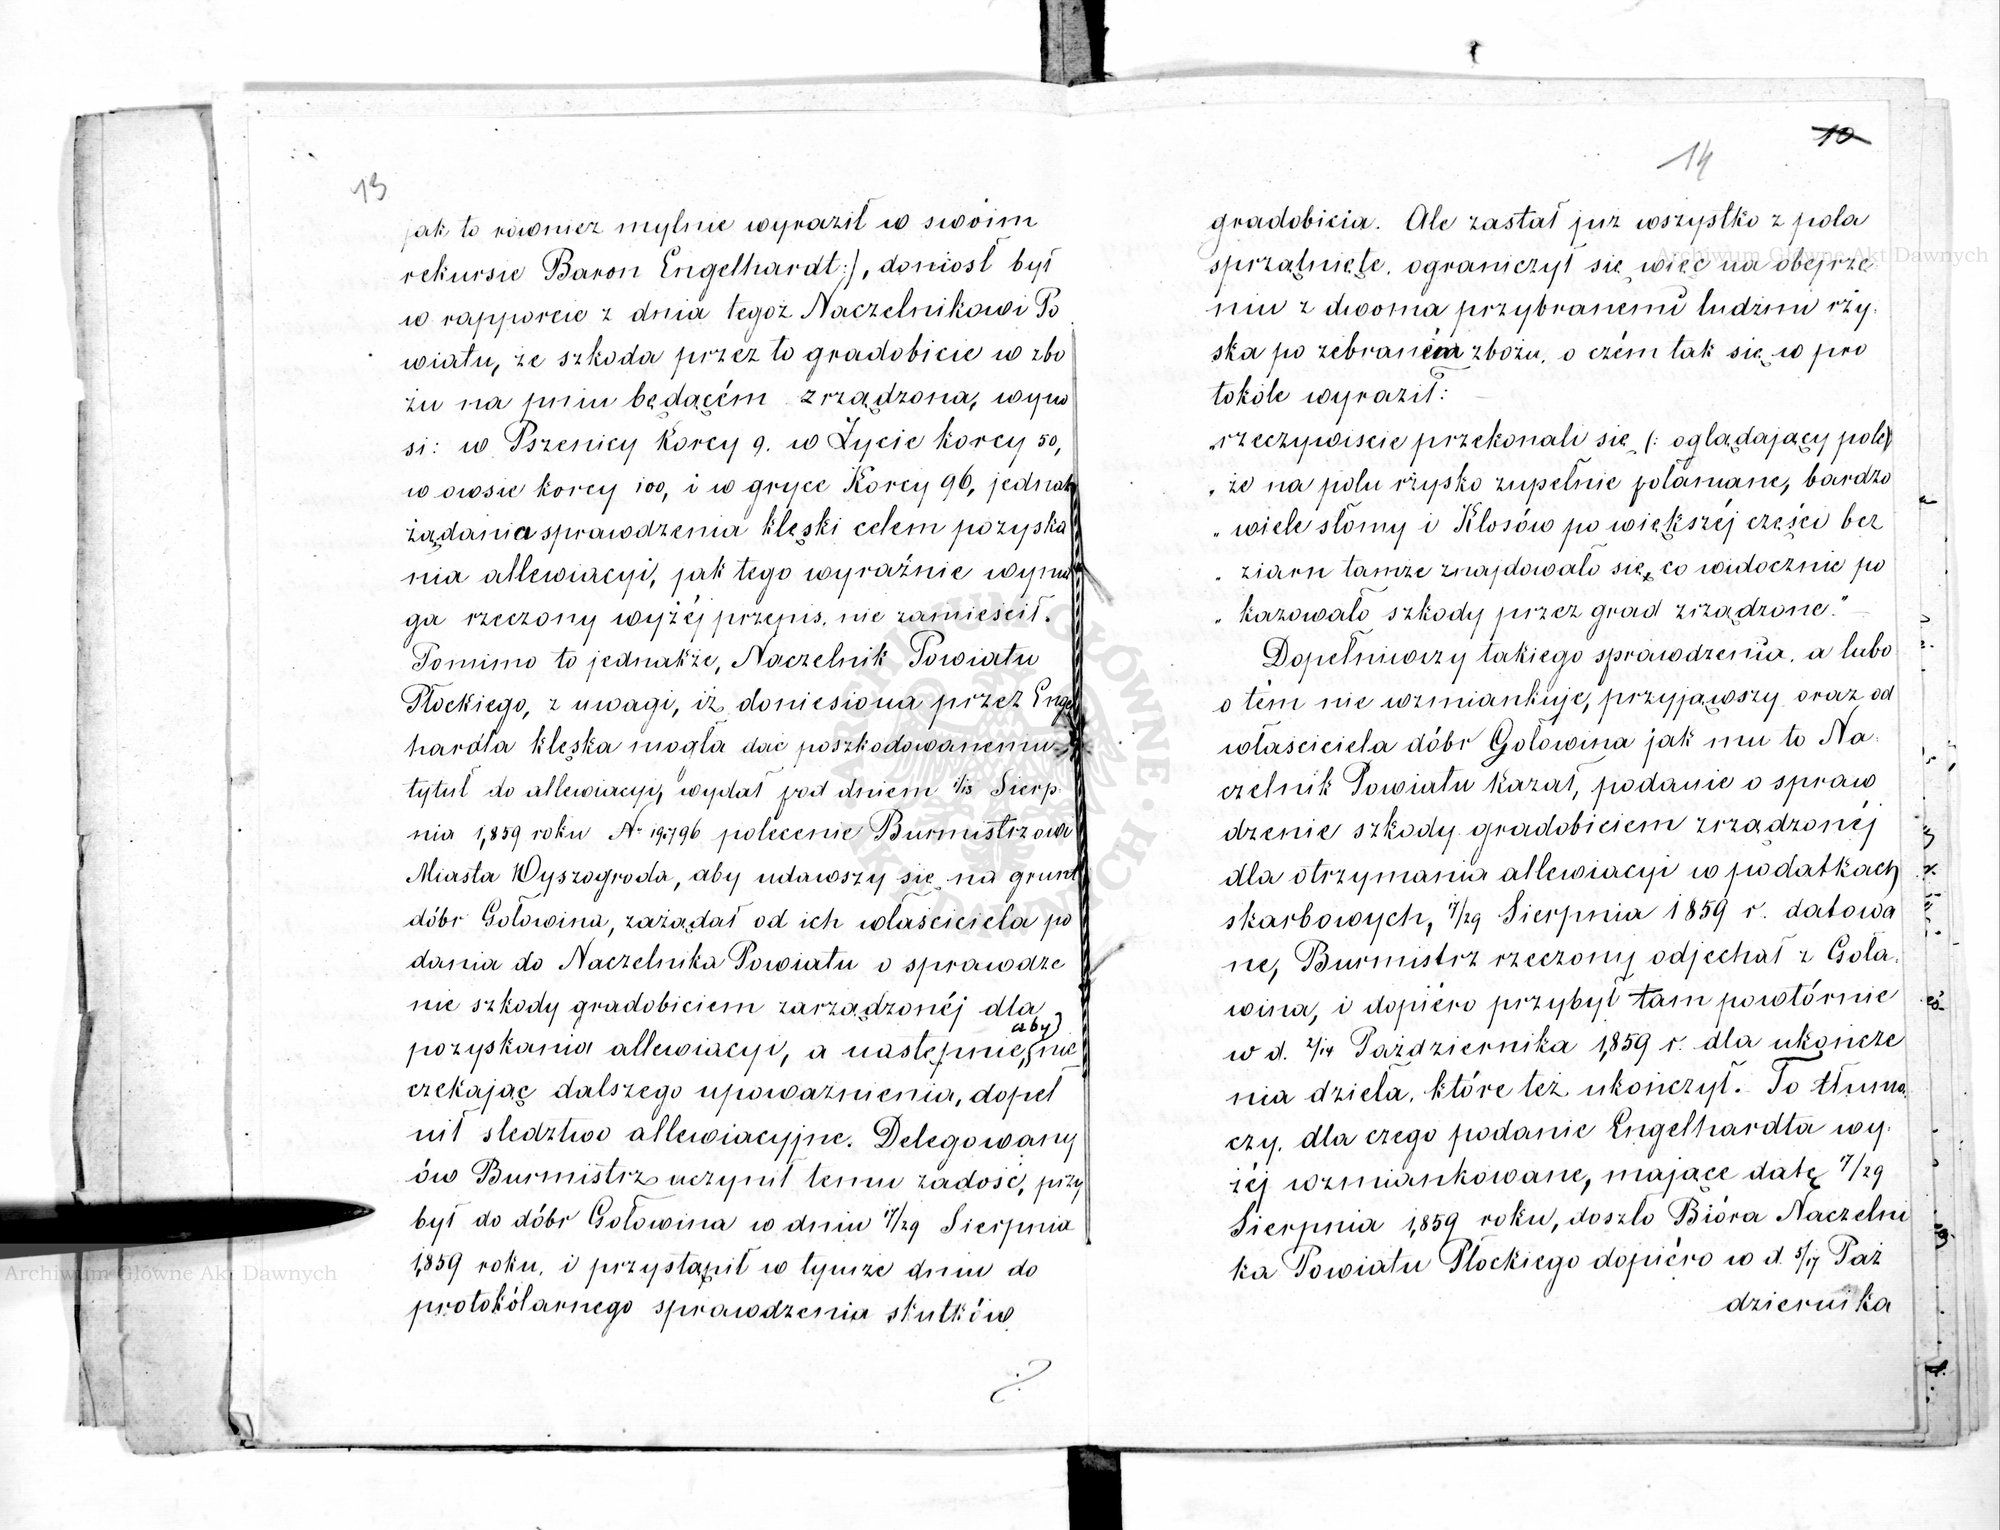 13
jak to również mylnie wyraził w swoim
rekursie Baron Engelhardt:/, doniosł był
w rapporcie z dnia tegoż Naczelnikowi Po
wiatu, że szkoda przez to gradobicie w zbo
żu na pniu będącém zrządzona, wyno
si: w Pszenicy Korcy 9. w Życie korcy 50,
w owsie korcy 100, i w gryce Korcy 96, jednak
żądania sprawdzenia klęski celem pozyska
nia allewiacyi, jak tego wyraźnie wyma
ga rzeczony wyżéj przepis, nie zamieścił.
Pomimo to jednakże, Naczelnik Powiatu
Płockiego, z uwagi, iż doniesiona przez Engel
hardta klęska mogła dać poszkodowanemu
tytuł do allewiacyi, wydał pod dniem 1/13 Sierp
nia 1859 roku Nr 19796 polecenie Burmistrzowi
Miasta Wyszogroda, aby udawszy się na grunt
dóbr Gołowina, zażądał od ich właściciela po
dania do Naczelnika Powiatu o sprawdze
nie szkody gradobiciem zarządzonéj dla
aby
pozyskania allewiacyi, a następnie, nie
czekając dalszego upoważnienia, dopeł
nił śledztwo allewiacyjne. Delegowany
ów Burmistrz uczynił temu zadość, przy
był do dóbr Gołowina w dniu 17/29 Sierpnia
1859 roku, i przystąpił w tymże dniu do
protokólarnego sprawdzenia skutków
10
14
gradobicia. Ale zastał już wszystko z pola
sprzątnięte, ograniczył się więc na obejrze
niu z dwoma przybranemi ludźmi rży
ska po zebraném zbożu, o czém tak się w pro
tokóle wyraził:
„rzeczywiście przekonali się (: oglądający pole)
„ że na polu rżysko zupełnie połamane, bardzo
„ wiele słomy i Kłosów po większéj części bez
„ ziarn tamże znajdowało się, co widocznie po
„ kazowało szkody przez grad zrządzone."
Dopełniwszy takiego sprawdzenia, a lubo
o tém nie wzmiankuje, przyjąwszy oraz od
właściciela dóbr Gołowina jak mu to Na
czelnik Powiatu kazał, podanie o spraw
dzenie szkody gradobiciem zrządzonéj
dla otrzymania allewiacyi w podatkach
skarbowych, 17/29 Sierpnia 1859 r. datowa
ne, Burmistrz rzeczony odjechał z Goła
wina, i dopiéro przybył tam powtórnie
w d. 2/14 Października 1859 r. dla ukończe
nia dzieła, które też ukończył. To tłuma
czy, dla czego podanie Engelhardta wy
żéj wzmiankowane, mające datę 17/29
Sierpnia 1859 roku, doszło Bióra Naczelni
ka Powiatu Płockiego dopiéro w d. 5/17 Paź
dziernika
Archiwum Główne Akt Dawnych
Archiwum Główne Akt Dawnych
ARCHIWUM GŁÓWNE AKT DAWNYCH